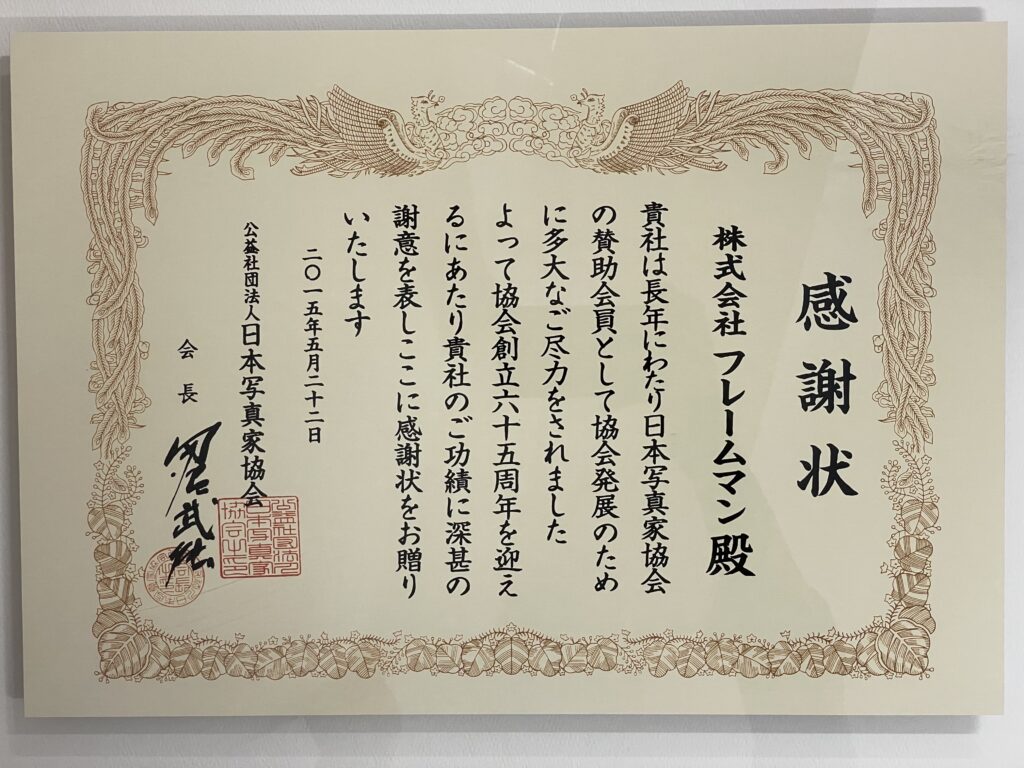 感謝状
株式会社 フレームマン殿
貴社は長年にわたり日本写真家協会
の賛助会員として協会発展のため
に多大なご尽力をされました
よって協会創立六十五周年を迎え
るにあたり貴社のご功績に深甚の
謝意を表しここに感謝状をお贈り
いたします
二〇一五年五月二十二日
公益社団法人日本写真家協会
会長